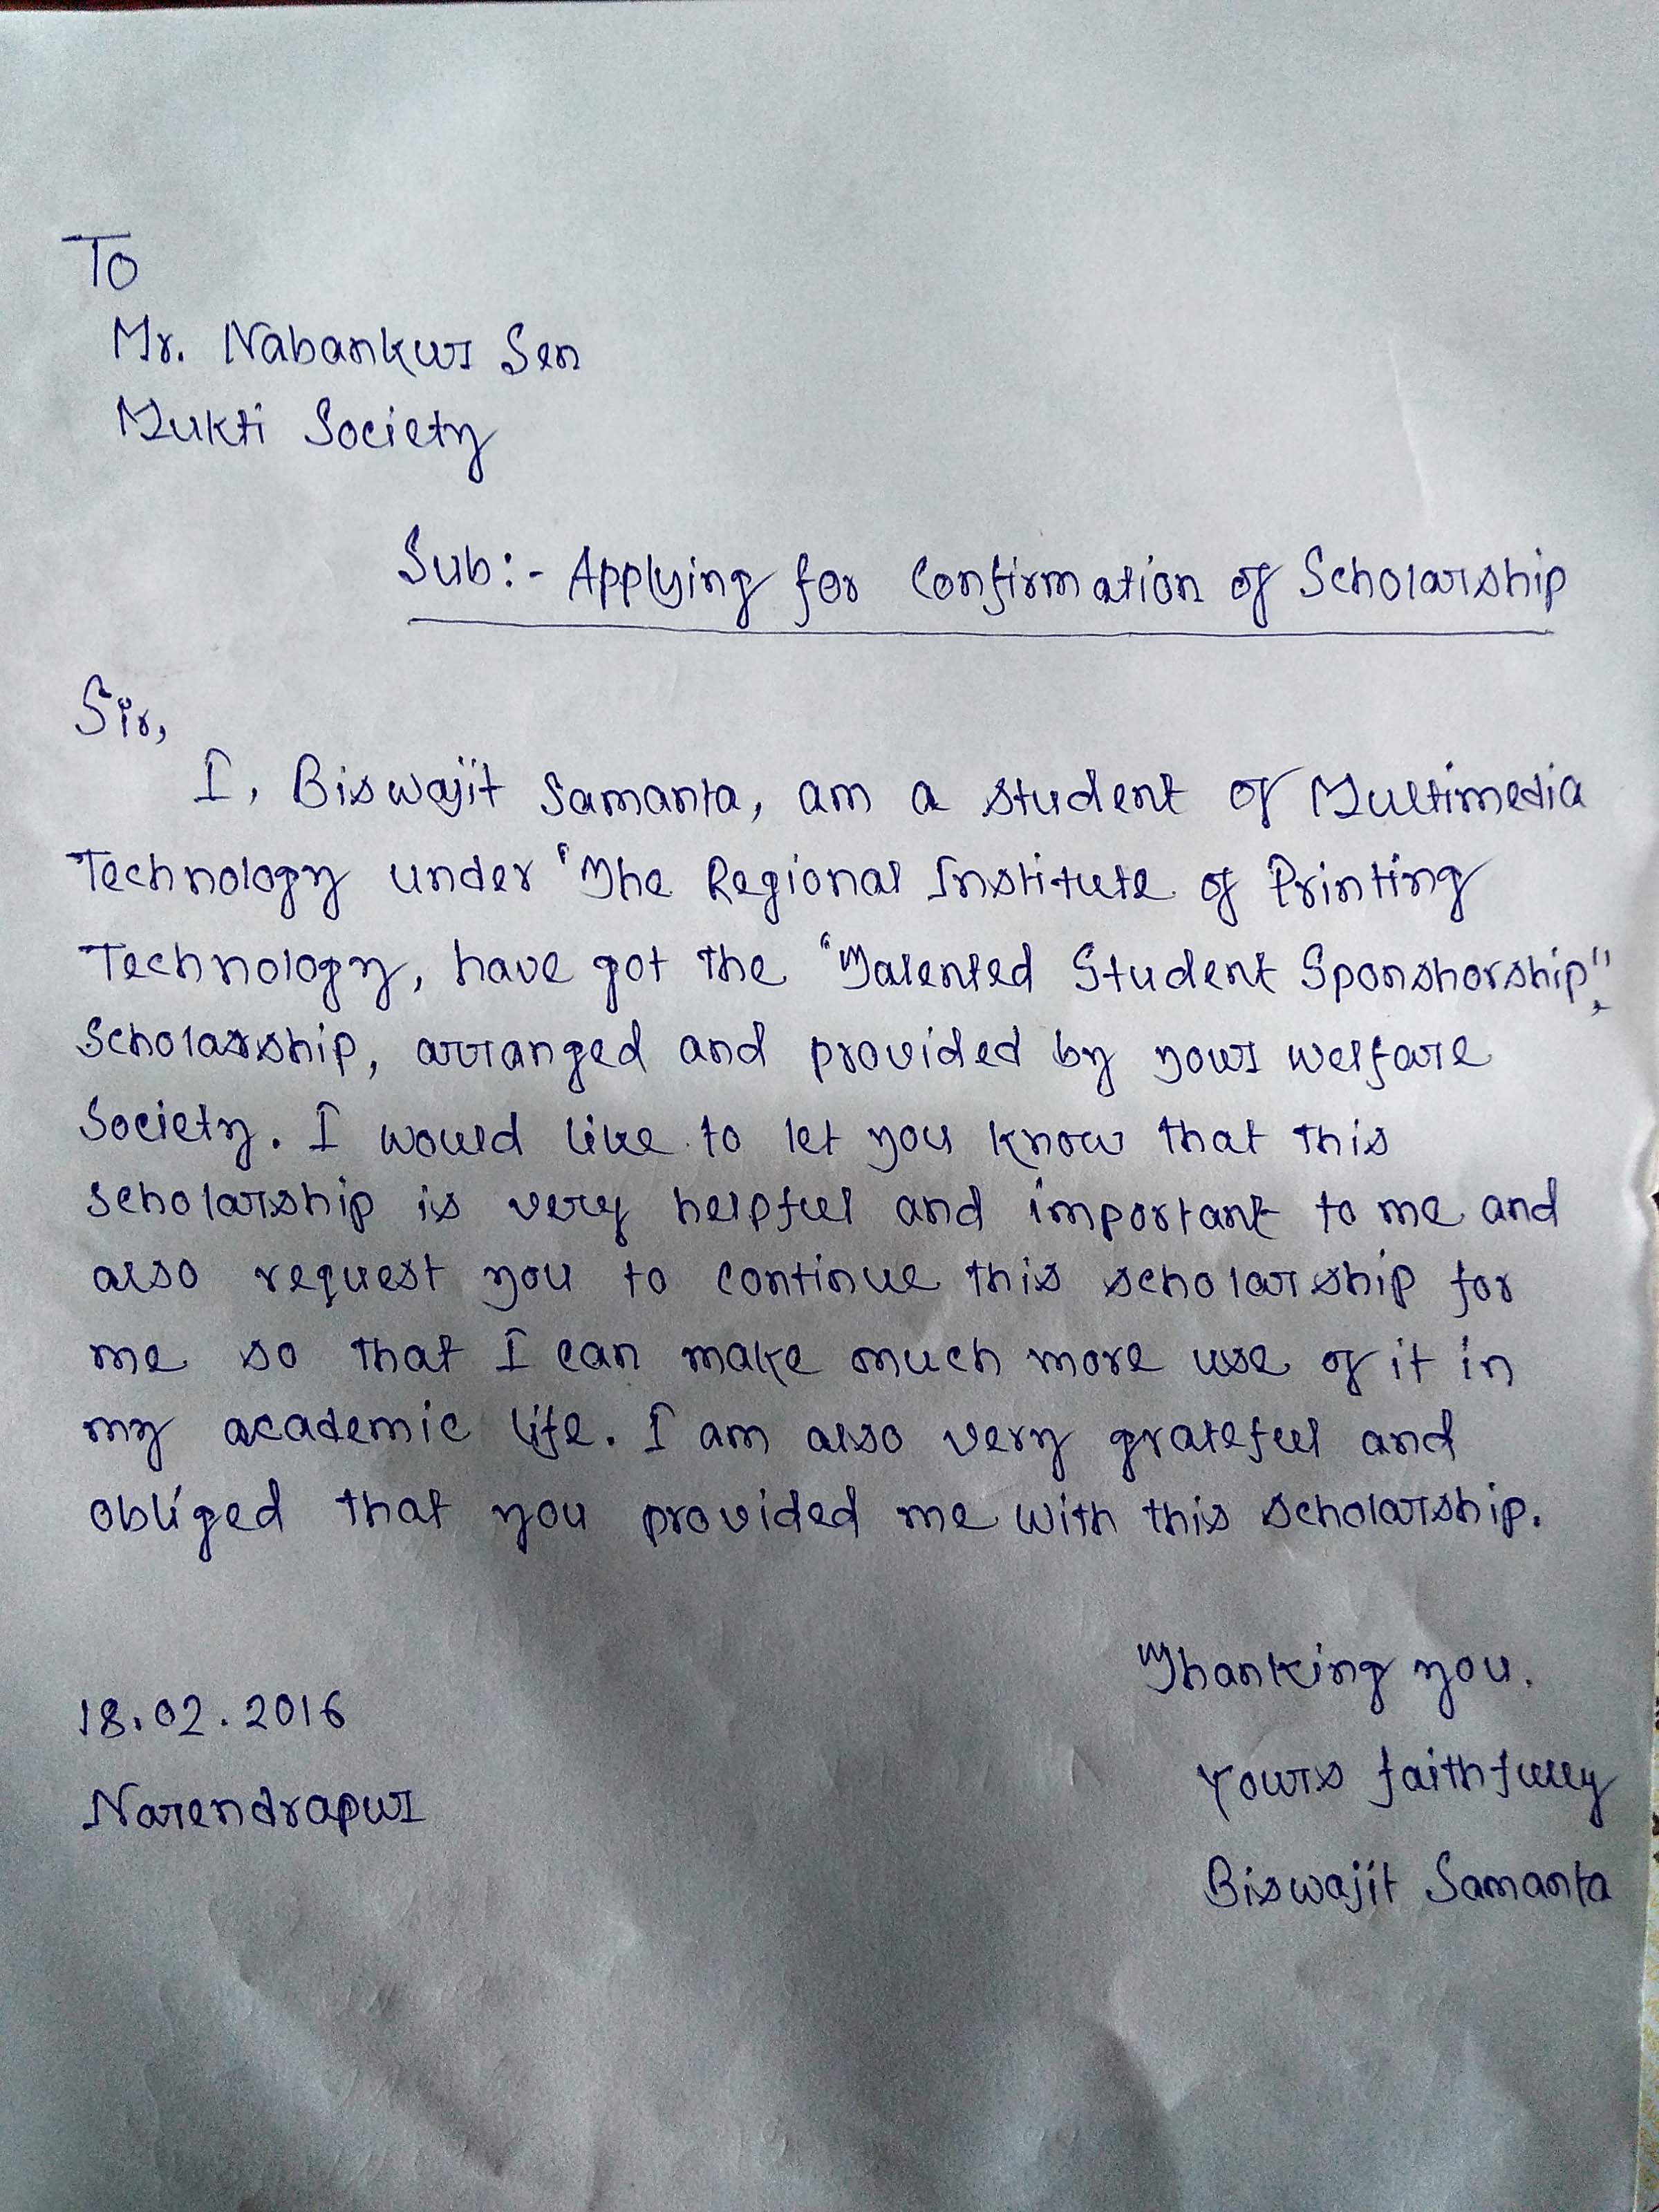 To
Mr. Nabankur Sen
Mukti Society
Sub:- Applying for Confirmation of Scholarship
Sir,
I, Biswajit Samanta, am a student of Multimedia
Technology under 'The Regional Institute of Printing
Technology, have got the "Talented Student Sponshorship",
Scholarship, arranged and provided by your welfare
Society. I would like to let you know that this
scholarship is very helpful and important to me and
also request you to continue this scholarship for
me so that I can make much more use of it in
my academic life. I am also very grateful and
obliged that you provided me with this scholarship.
Thanking you.
18.02.2016
Yours faithfully
Narendrapur
Biswajit Samanta